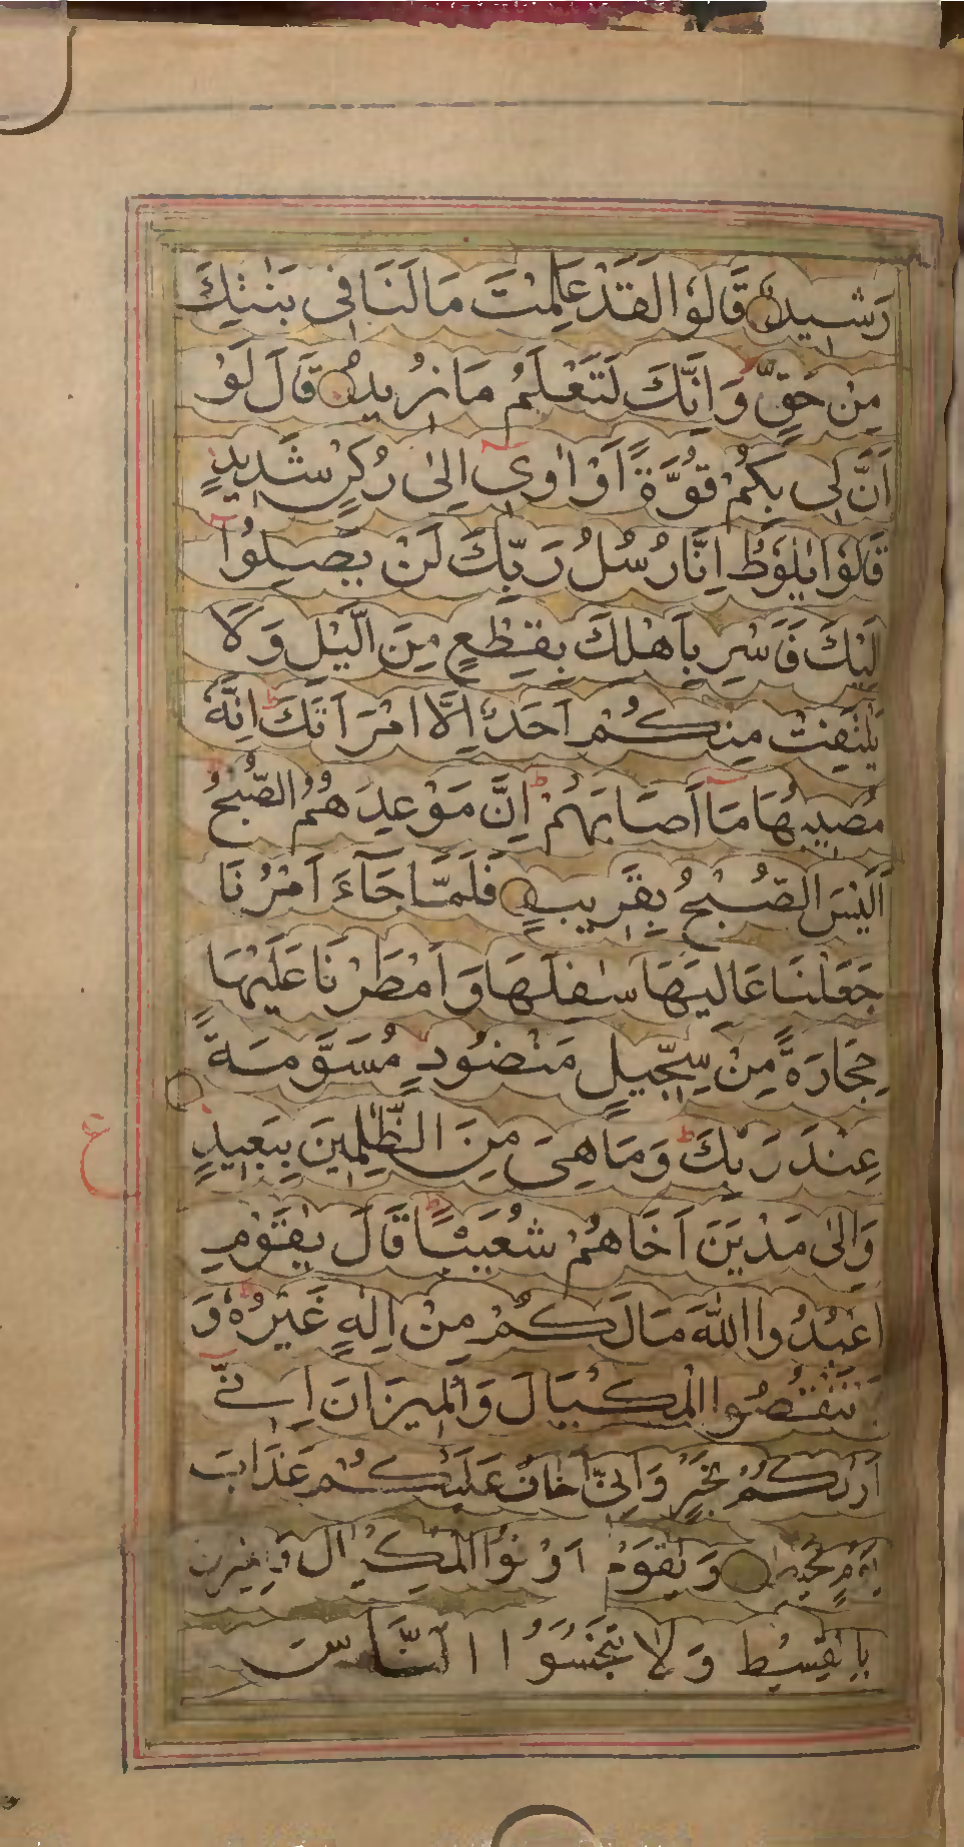 رَشِيدٌ قَالُوا لَقَدْ عَلِمْتَ مَا لَنَا فِى بَنٰتِكَ
مِنْ حَقٍّ وَاِنَّكَ لَتَعْلَمُ مَا نُرِيدُ قَالَ لَوْ
اَنَّ لِى بِكُمْ قُوَّةً اَوْ اٰوِى اِلىٰ رُكْنٍ شَدِيدٍ
قَالُوا يٰلُوطُ اِنَّا رُسُلُ رَبِّكَ لَنْ يَصِلُوا
اِلَيْكَ فَاَسْرِ بِاَهْلِكَ بِقِطْعٍ مِنَ الَّيْلِ وَلَا
يَلْتَفِتْ مِنْكُمْ اَحَدٌ اِلَّا امْرَاَتَكَ اِنَّهُ
مُصِيبُهَا مَا اَصَابَهُمْ اِنَّ مَوْعِدَهُمُ الصُّبْحُ
اَلَيْسَ الصُّبْحُ بِقَرِيبٍ فَلَمَّا جَآءَ اَمْرُنَا
جَعَلْنَا عَالِيَهَا سَافِلَهَا وَاَمْطَرْنَا عَلَيْهَا
حِجَارَةً مِنْ سِجِّيلٍ مَنْضُودٍ مُسَوَّمَةً
عِنْدَ رَبِّكَ وَمَا هِىَ مِنَ الظّٰلِمِينَ بِبَعِيدٍ
ع
وَاِلىٰ مَدْيَنَ اَخَاهُمْ شُعَيْبًا قَالَ يٰقَوْمِ
اعْبُدُوا اللّٰهَ مَا لَكُمْ مِنْ اِلٰهٍ غَيْرُهُ وَ
تَنْقُصُوا الْمِكْيَالَ وَالْمِيزَانَ اِنِّى
اَرٰىكُمْ بِخَيْرٍ وَاِنِّى اَخَافُ عَلَيْكُمْ عَذَابَ
يَوْمٍ مُحِيطٍ وَيٰقَوْمِ اَوْفُوا الْمِكْيَالَ
بِالْقِسْطِ وَلَا تَبْخَسُوا النَّاسَ